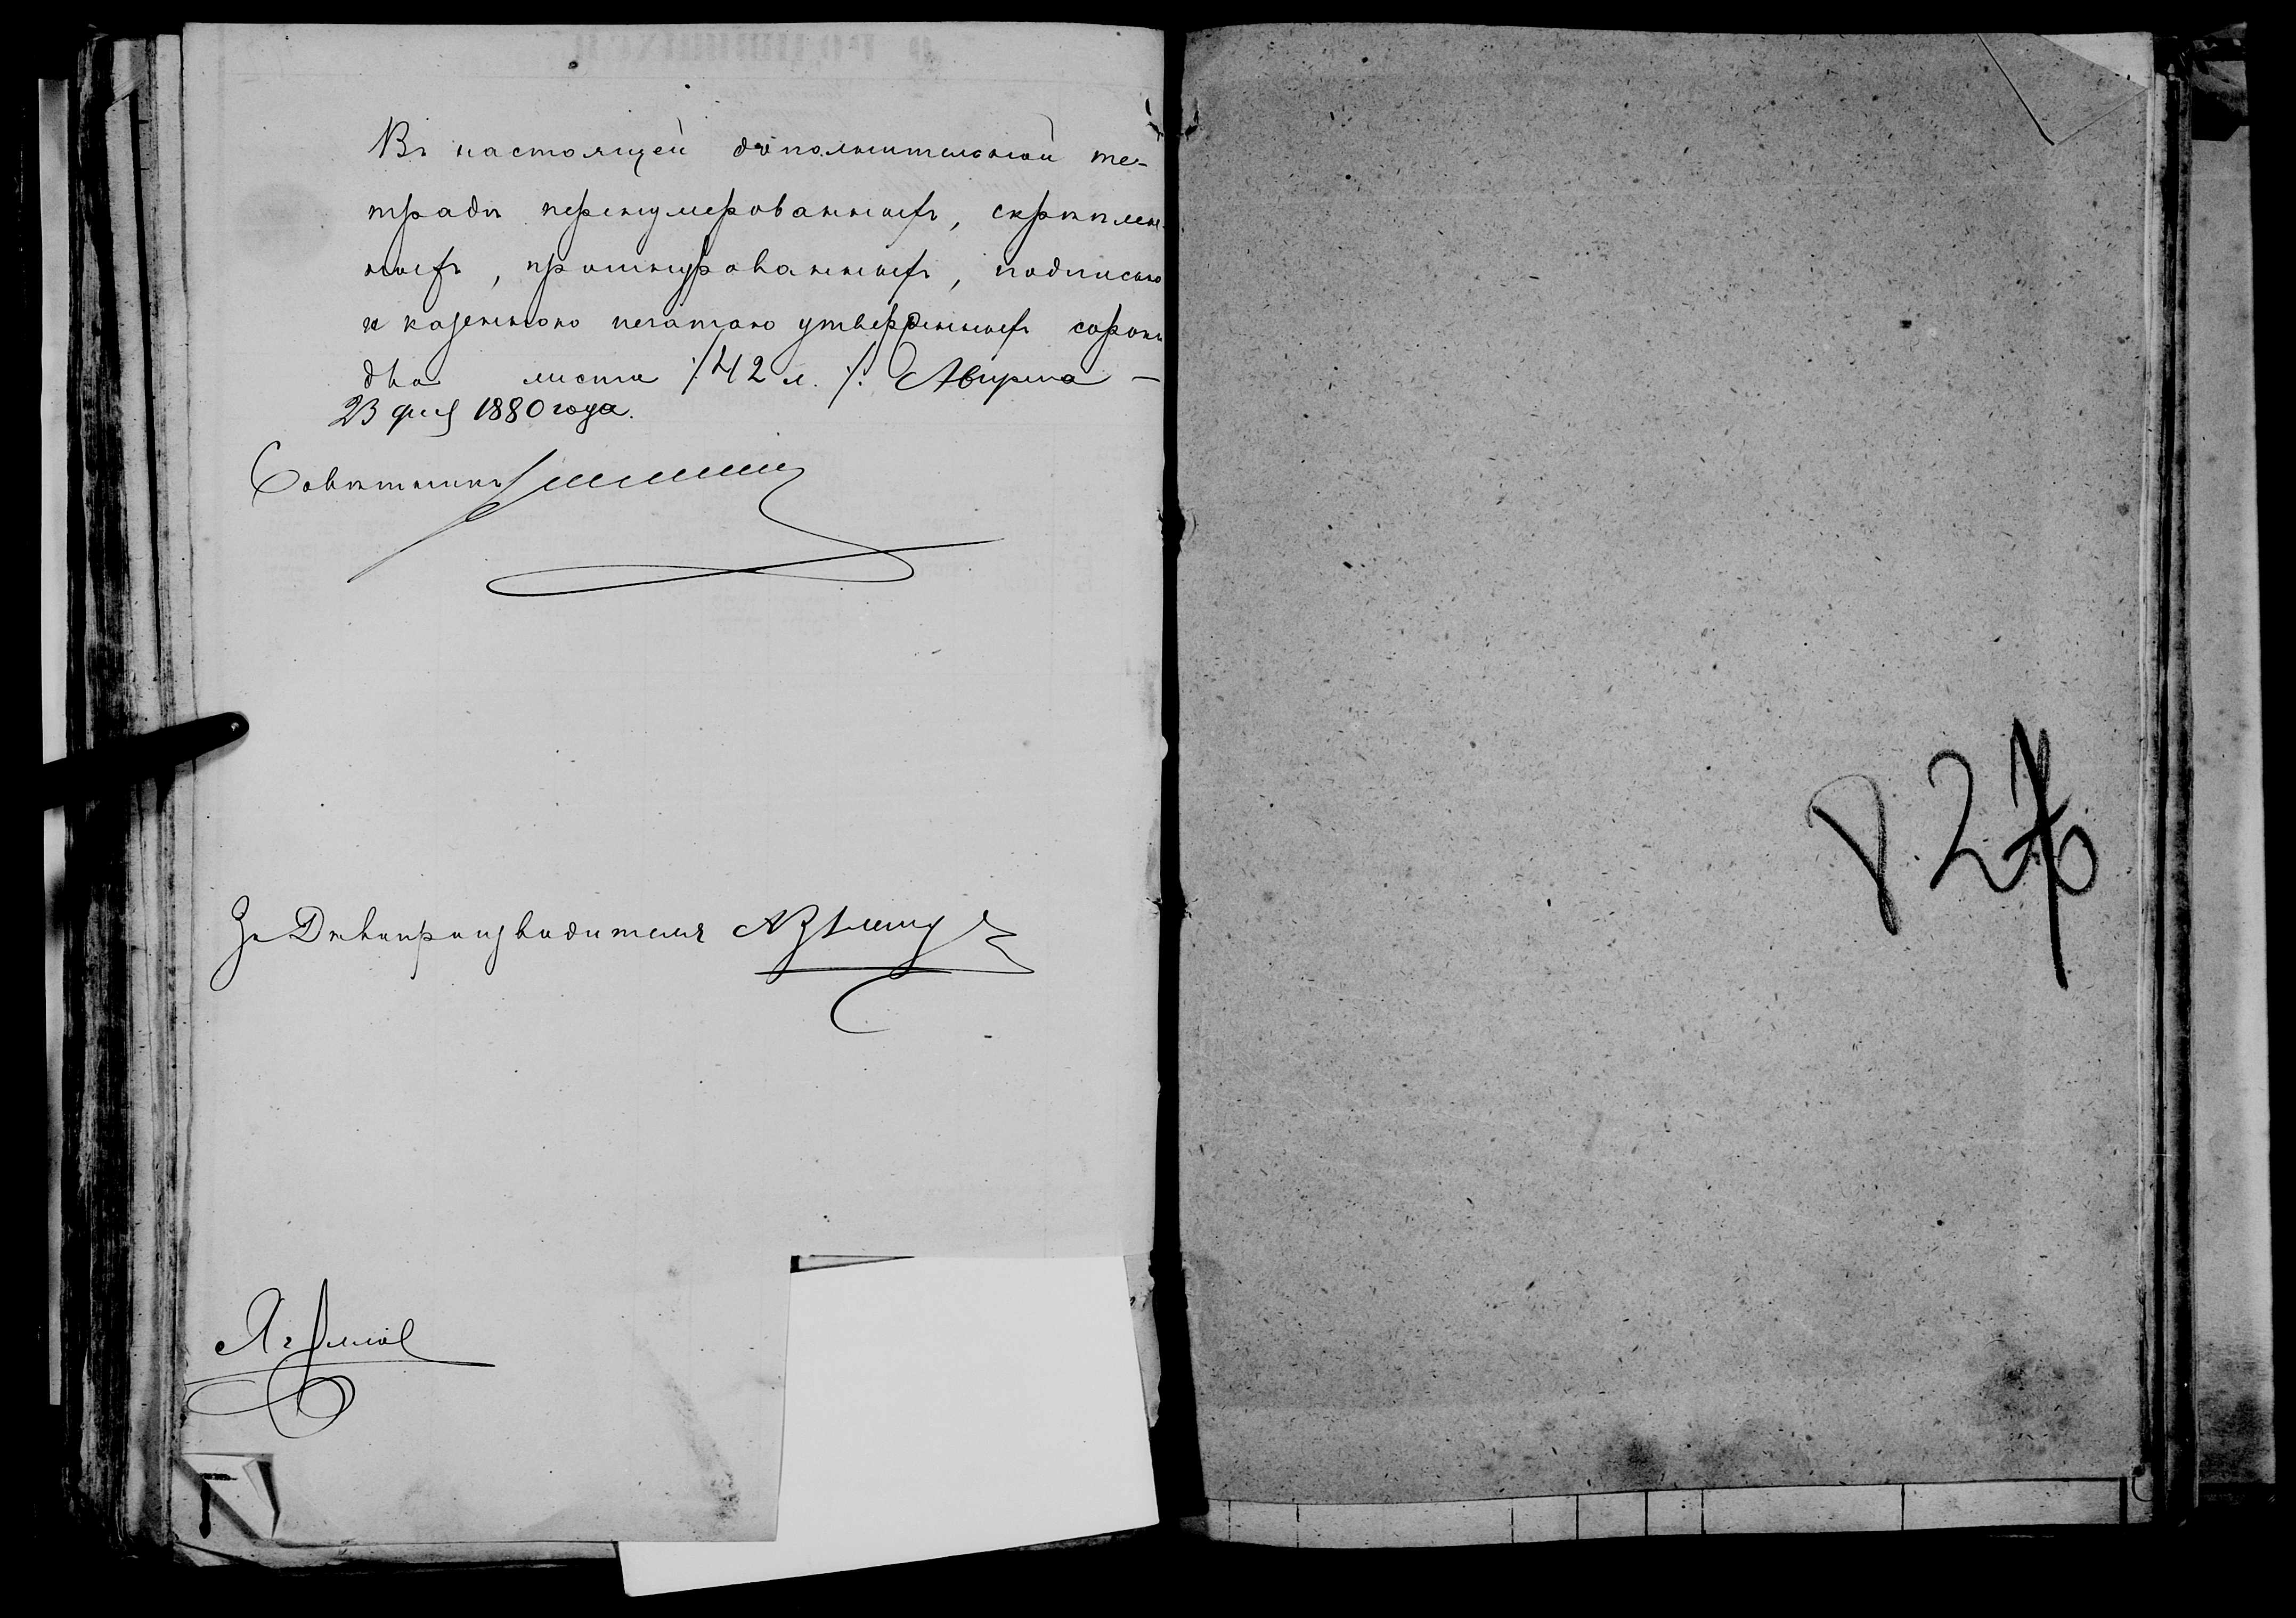 Въ настоящей дополнительной те-
тради перенумерованныхъ, скрѣплен-
ныхъ, прошнурованныхъ, подписью
и казенною печатью утвержденныхъ сорокъ
два листа /:42 л.:/.
23 1880 года.
Совѣтникъ
За Дѣлопроизводителя